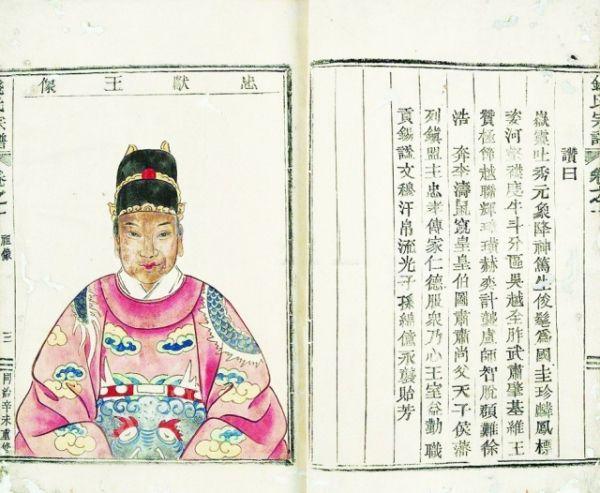 錢氏宗譜
卷之一
讚曰
嶽靈吐秀元象降神篤生俊髦爲國圭珍麟鳳標
姿河 度牛斗分區吳越全胙武肅肇基維王
贊極 越聯輝璋璜赫奕計龔盧師智脫顏難徐
浩奔李濤鼠竄皇皇伯圖肅肅尚父天子侯藩
列鎮盟主忠孝傳家仁德服衆乃心王室益勤職
貢錫諡文穆汗帛流光子孫綿億永襲貽芳
忠獻王像
錢氏宗譜
卷之一
祖像
三
同治辛未重修